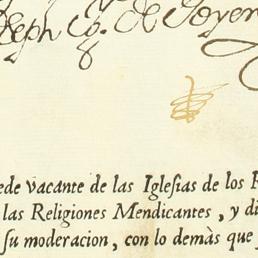 de Joyer
ede vacante de las Iglesias de los R
las Religiones Mendicantes, y di
su moderacion, con lo demàs que